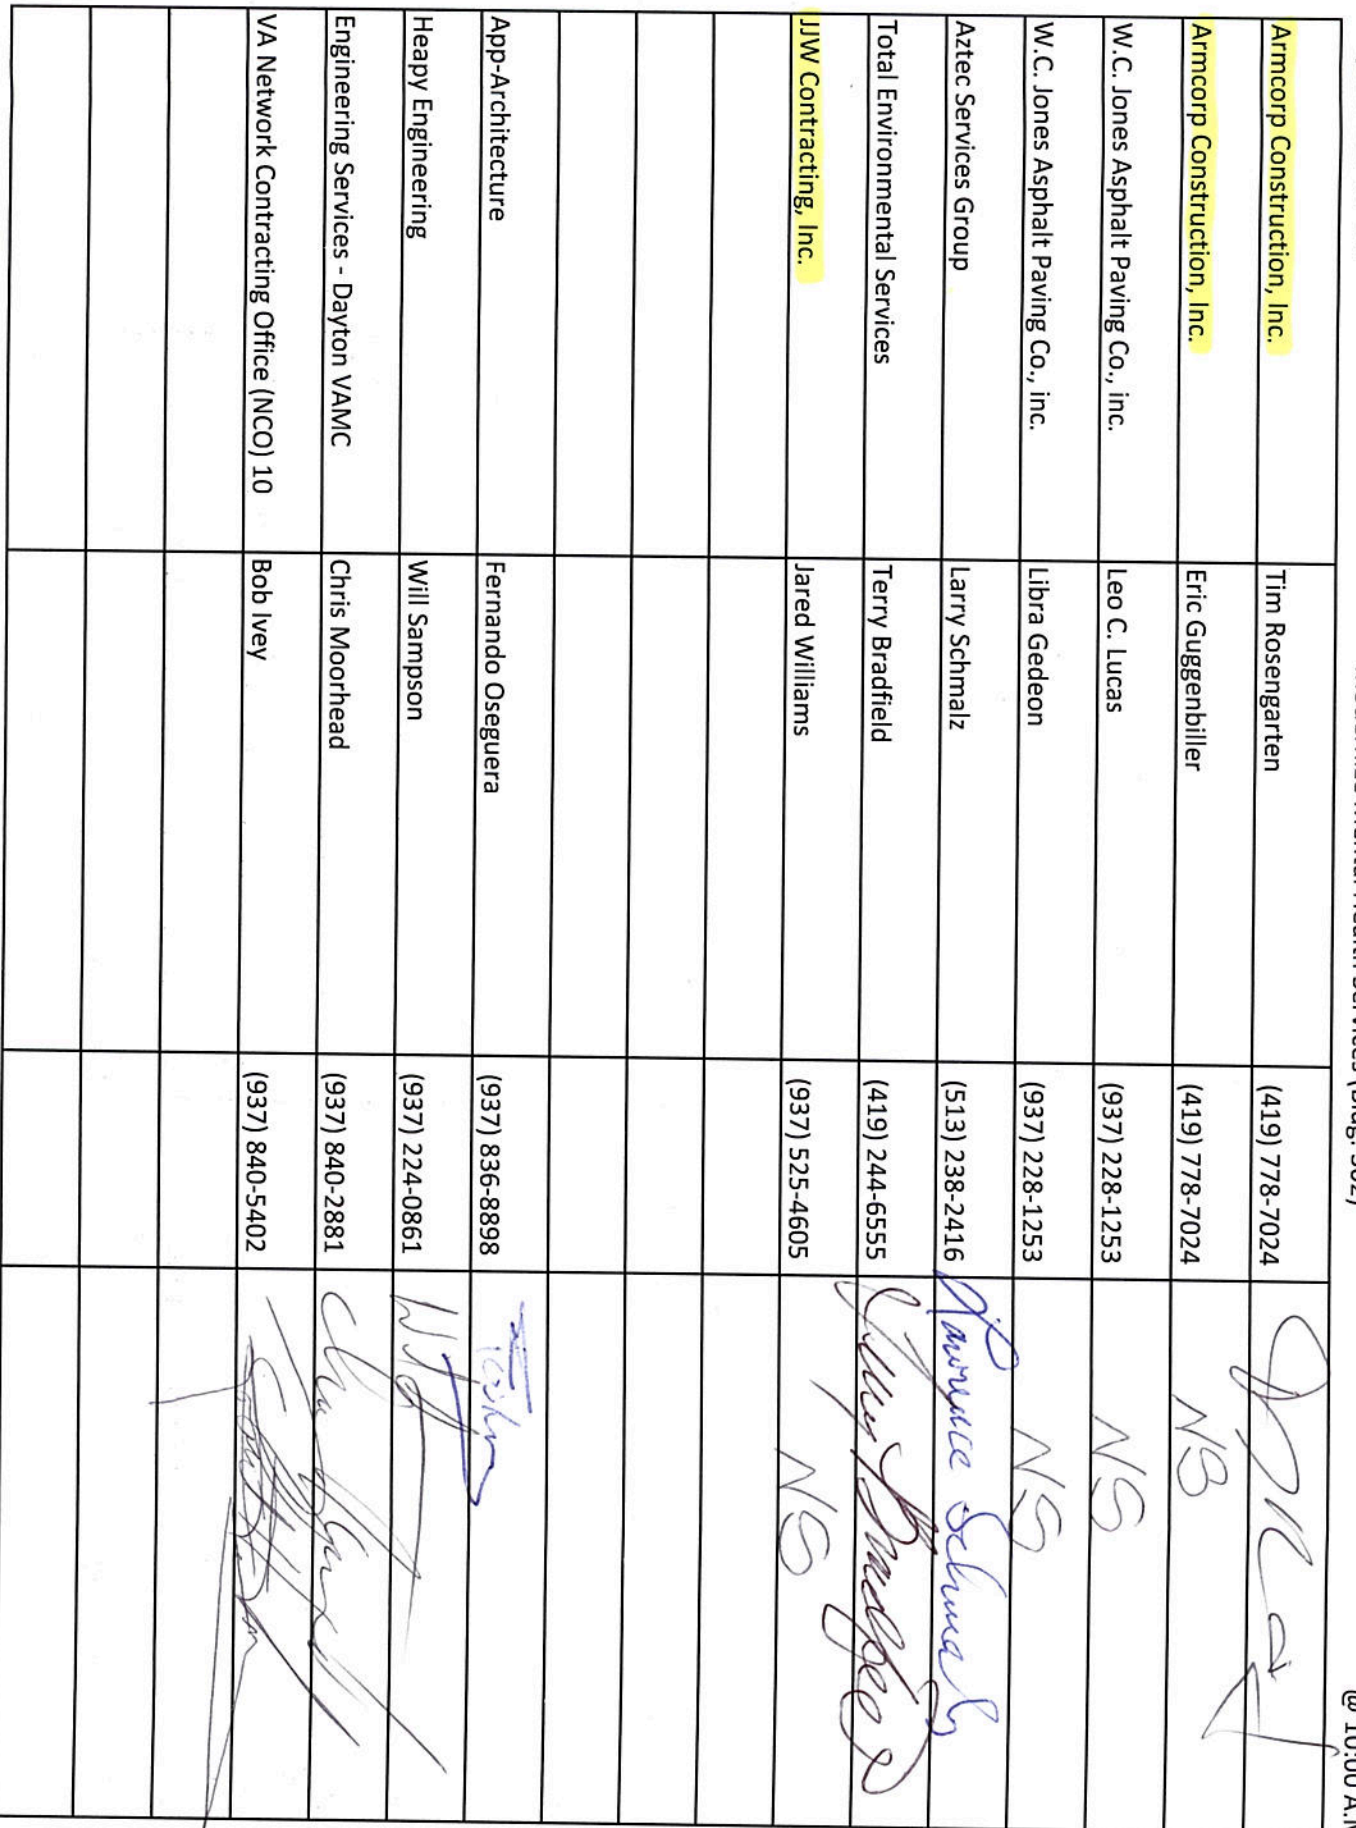 Mental Health Services (Bldg. 302)
@ 10:00 A.M
Armcorp Construction, Inc. Tim Rosengarten (419) 778-7024
Armcorp Construction, Inc. Eric Guggenbiller (419) 778-7024 NS
W.C. Jones Asphalt Paving Co., inc. Leo C. Lucas (937) 228-1253 NS
W.C. Jones Asphalt Paving Co., inc. Libra Gedeon (937) 228-1253 NS
Aztec Services Group Larry Schmalz (513) 238-2416 Lawrence Schmalz
Total Environmental Services Terry Bradfield (419) 244-6555
JJW Contracting, Inc. Jared Williams (937) 525-4605 NS
App-Architecture Fernando Oseguera (937) 836-8898
Heapy Engineering Will Sampson (937) 224-0861
Engineering Services - Dayton VAMC Chris Moorhead (937) 840-2881
VA Network Contracting Office (NCO) 10 Bob Ivey (937) 840-5402